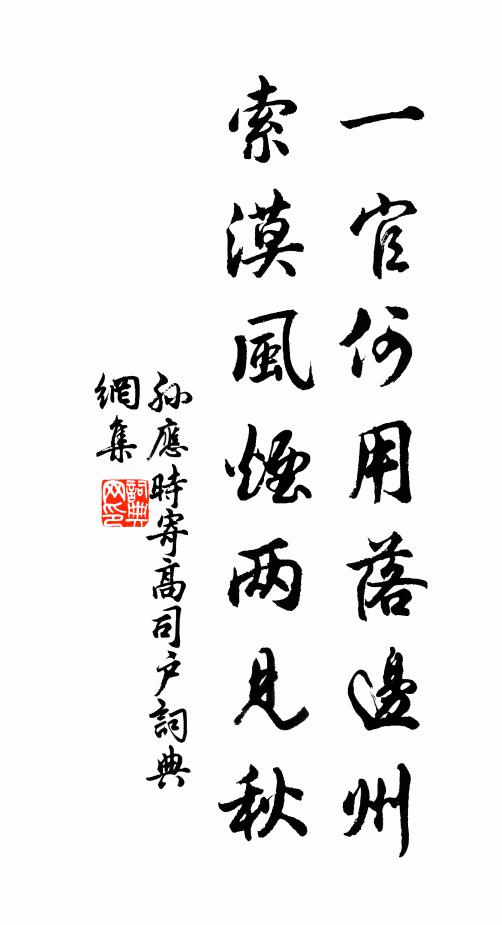 一官何用落邊州
索漠風煙两見秋
孙應時寄高司户詞典
網集
詞典網印